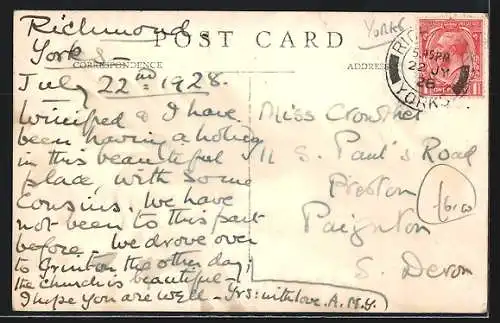 Richmond
Yorks
POST CARD
YORKS
CORRESPONDENCE
ADDRESS
July 22nd 1928.
Winifred & I have
been having a holiday
in this beautiful
place, with some
cousins. We have
not been to this part
before. We drove over
to Grinton the other day,
the church is beautiful –
I hope you are well – Yrs: with love. A.M.Y.
RIC
5.45PM
22 JY
28
YORKS
Miss Crowther
11 S. Paul's Road
Preston
Paignton
S. Devon